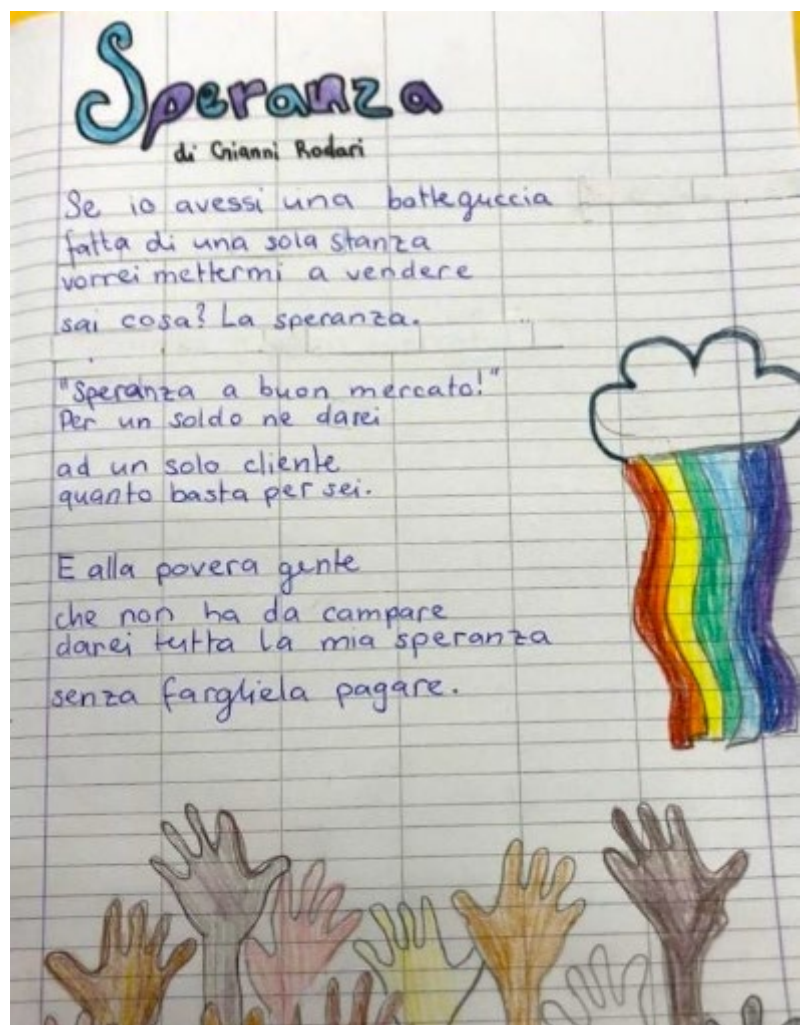 Speranza
di Gianni Rodari
Se io avessi una botteguccia
fatta di una sola stanza
vorrei mettermi a vendere
sai cosa? La speranza.
"Speranza a buon mercato!"
Per un soldo ne darei
ad un solo cliente
quanto basta per sei.
E alla povera gente
che non ha da campare
darei tutta la mia speranza
senza fargliela pagare.